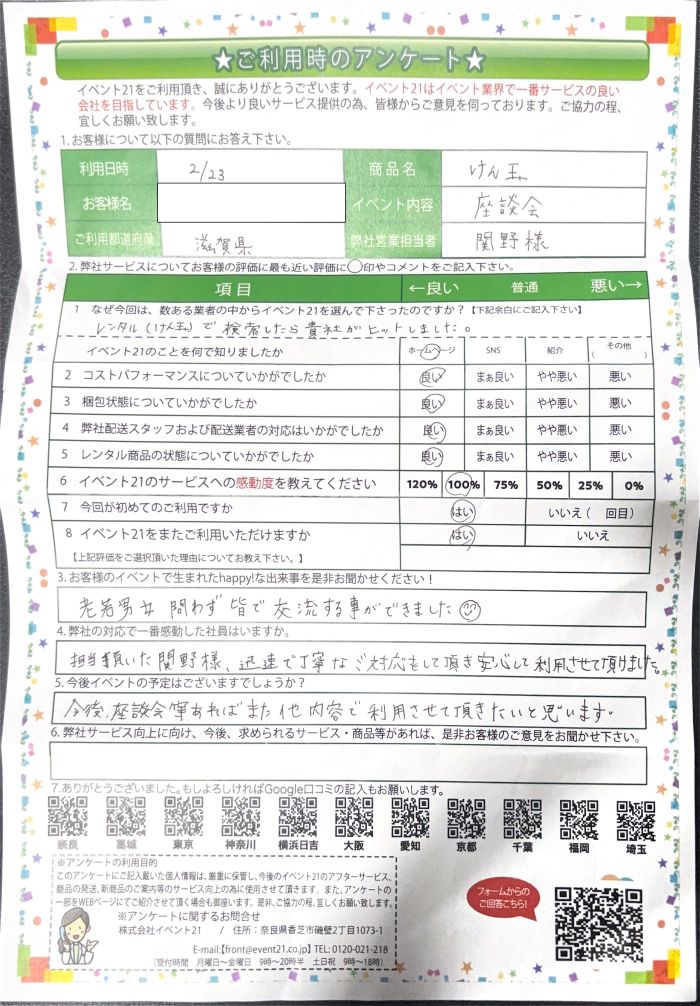 ★ご利用時のアンケート★
イベント21をご利用頂き、誠にありがとうございます。イベント21はイベント業界で一番サービスの良い
会社を目指しています。今後より良いサービス提供の為、皆様からご意見を伺っております。ご協力の程、
宜しくお願い致します。
1.お客様について以下の質問にお答え下さい。
利用日時 2/23 商品名 けん玉
お客様名 イベント内容 座談会
ご利用都道府県 滋賀県 弊社営業担当者 関野様
2.弊社サービスについてお客様の評価に最も近い評価に○印やコメントをご記入下さい。
項目 ←良い 普通 悪い→
1 なぜ今回は、数ある業者の中からイベント21を選んで下さったのですか?【下記余白にご記入下さい】
レンタル(けん玉)で検索したら貴社がヒットしました。
イベント21のことを何で知りましたか ホームページ SNS 紹介 その他( )
2 コストパフォーマンスについていかがでしたか 良い まぁ良い やや悪い 悪い
3 梱包状態についていかがでしたか 良い まぁ良い やや悪い 悪い
4 弊社配送スタッフおよび配送業者の対応はいかがでしたか 良い まぁ良い やや悪い 悪い
5 レンタル商品の状態についていかがでしたか 良い まぁ良い やや悪い 悪い
6 イベント21のサービスへの感動度を教えてください 120% 100% 75% 50% 25% 0%
7 今回が初めてのご利用ですか はい いいえ( 回目)
8 イベント21をまたご利用いただけますか はい いいえ
【上記評価をご選択頂いた理由についてお教え下さい。】
3.お客様のイベントで生まれたhappy!な出来事を是非お聞かせください!
老若男女問わず皆で交流する事ができました
4.弊社の対応で一番感動した社員はいますか。
担当頂いた関野様、迅速で丁寧なご対応をして頂き安心して利用させて頂けました。
5.今後イベントの予定はございますでしょうか?
今後、座談会等あればまた他内容で利用させて頂きたいと思います。
6.弊社サービス向上に向け、今後、求められるサービス・商品等があれば、是非お客様のご意見をお聞かせ下さい。
7.ありがとうございました。もしよろしければGoogle口コミの記入もお願いします。
奈良 葛城 東京 神奈川 横浜日吉 大阪 愛知 京都 千葉 福岡 埼玉
※アンケートの利用目的
このアンケートにご記入戴いた個人情報は、厳重に保管し、今後のイベント21のアフターサービス、
商品の発送、新商品のご案内等のサービス向上の為に使用させて頂きます。また、アンケートの
一部をWEBページにてご紹介させて頂く場合も御座います。是非、ご協力の程、宜しくお願い致します。
※アンケートに関するお問合せ
株式会社イベント21 / 住所:奈良県香芝市磯壁2丁目1073-1
E-mail:【front@event21.co.jp】 TEL:0120-021-218
(受付時間 月曜日~金曜日 9時~20時半 土日祝 9時~18時)
フォームからの
ご回答こちら!